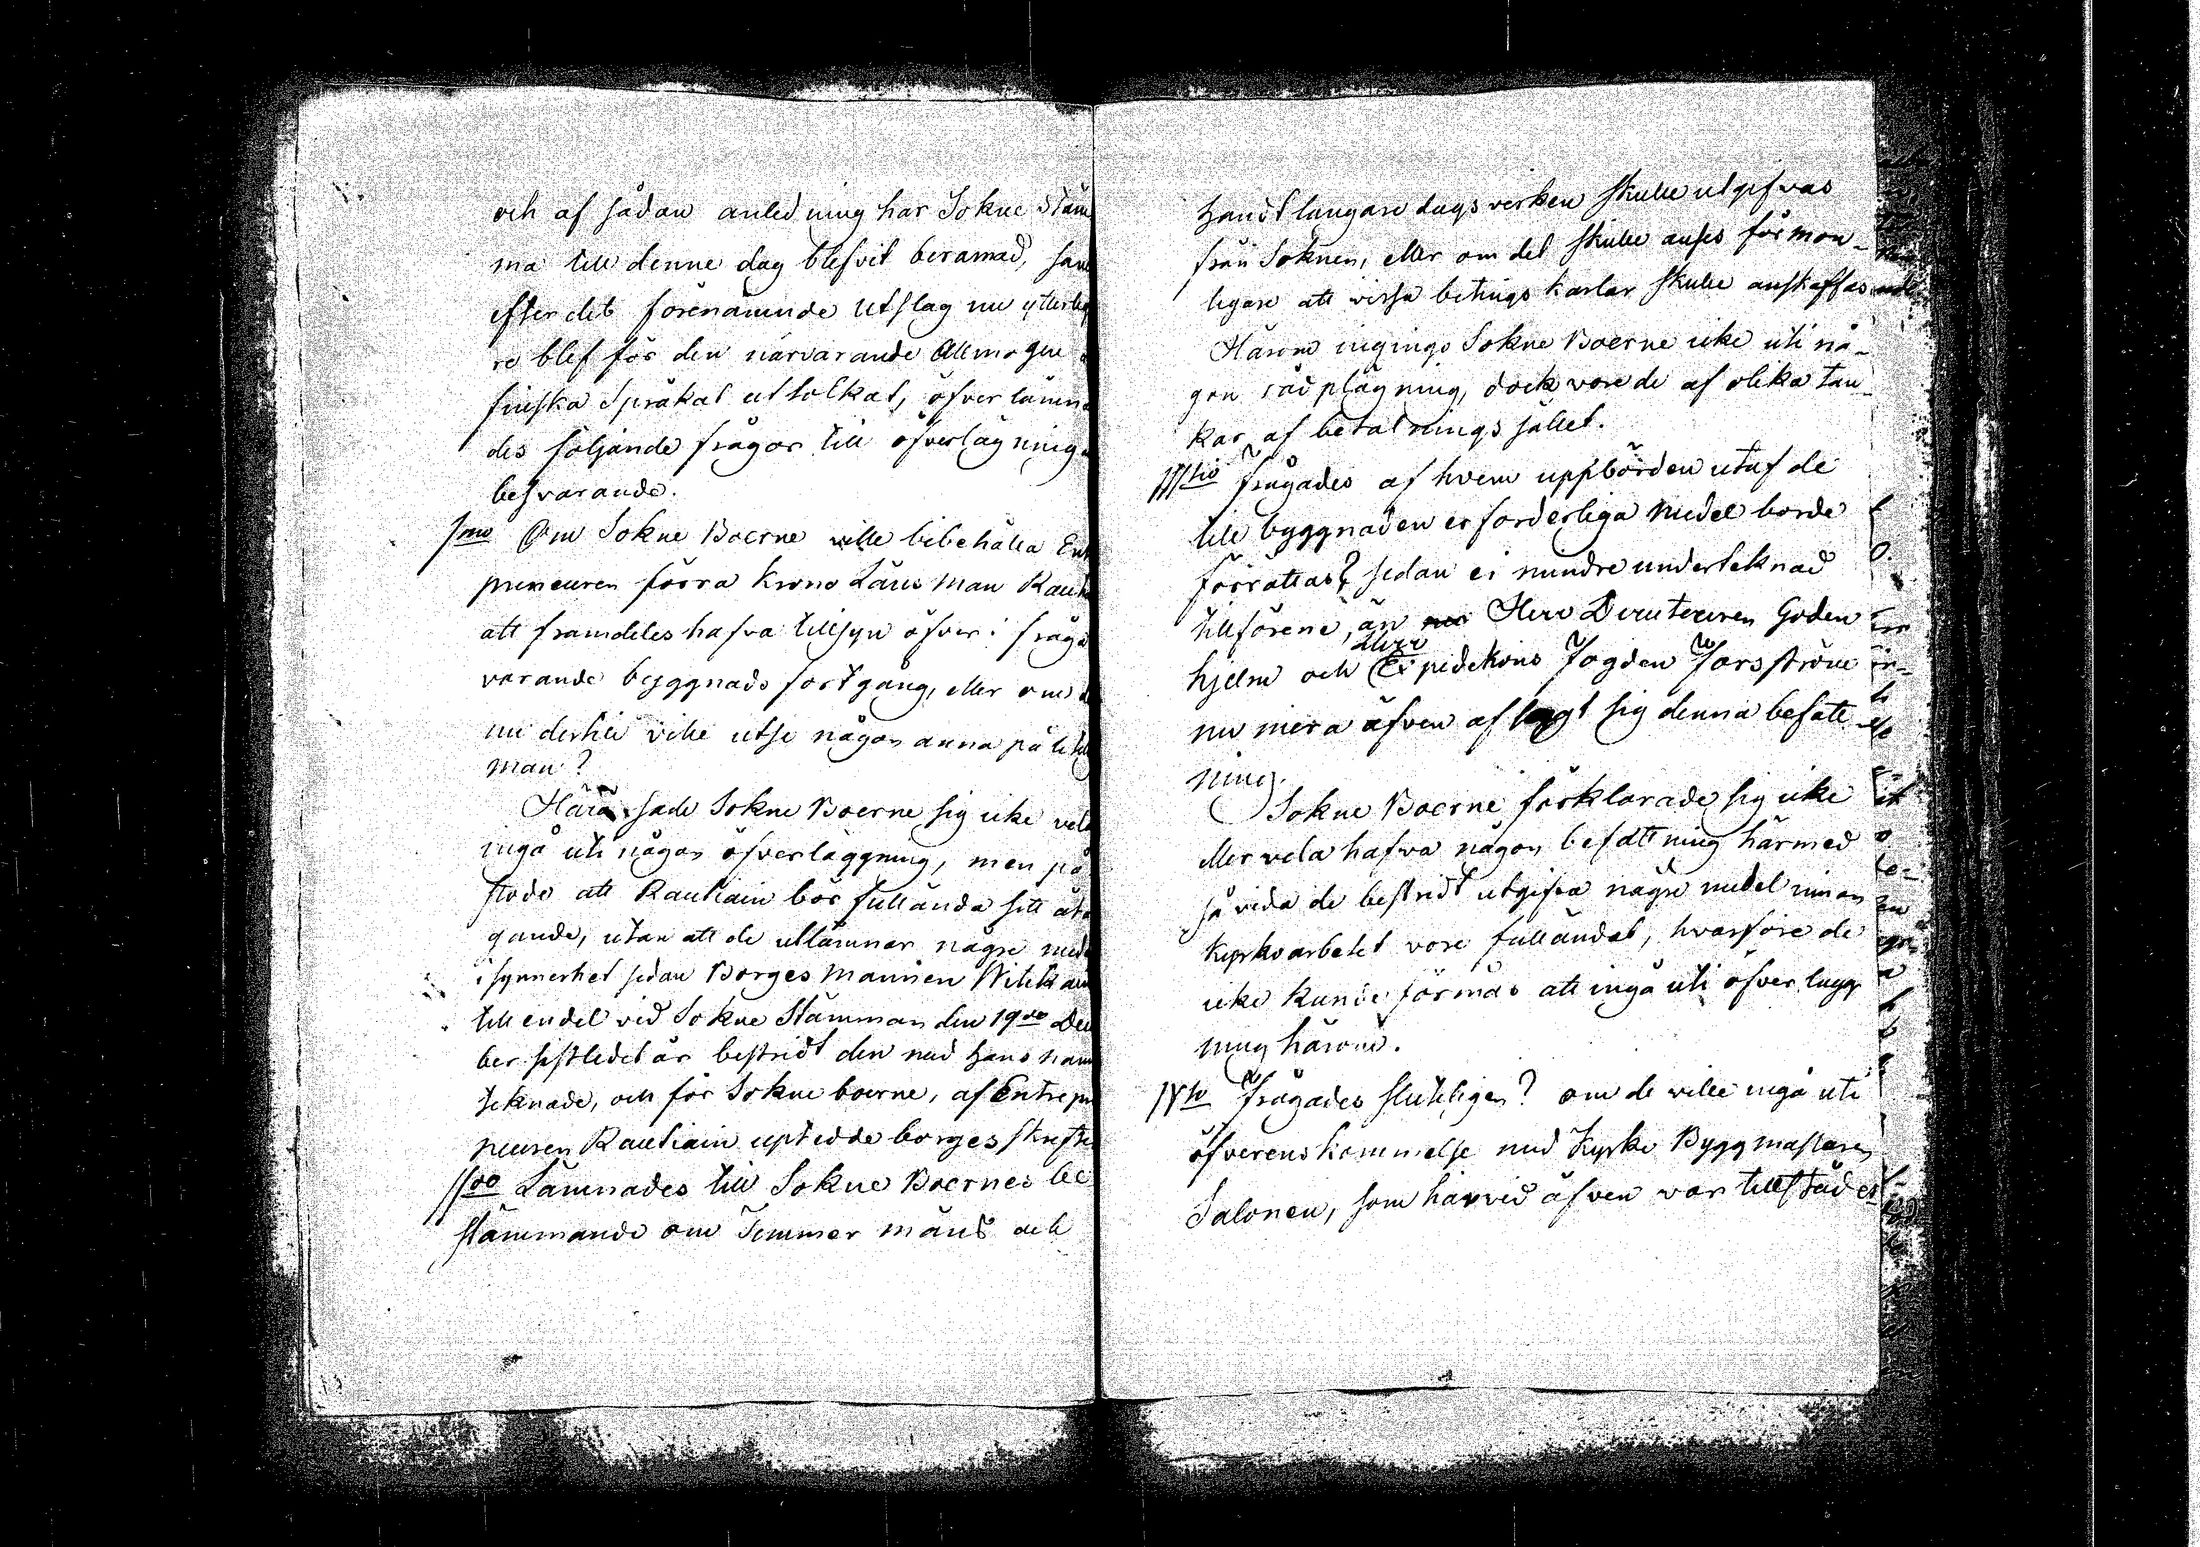 och af sådan anledning har Sokne Stäm
ma till denne dag blefvit beramad, sam
efter det förenämnde Utslag nu ytterlig
re blef för den närvarande Allmogen
finska Språkat uttolkat, öfverlämna
des följande frågor till öfverlägning
besvarande.
1mo Om Sokne Boerne wille bibehålla Ent
preneuren förra Krono Länsman Rauti
att framdeles hafva tillsyn öfver i fråga
varande byggnads fortgång, eller om
nu dertill ville utse någon anna pålitel
man?
Härå sade Sokne Boerne sig icke vela
ingå uti någon öfverläggning, men på
stode att Rautiain bör fullända sitt åta
gande, utan att de utlämnar någre med
i synnerhet sedan Borges mannen Witika
till en del vid Sokne Stämman den 19de De
ber sistledet år bestridt den med hans nam
teknade, och för Sokne boerne, af Entrepr
neuren Rautiain uptedde borges skrifte
IIdo Lämnades till Sokne Boernes be
stämmande om Timmer mäns och
handtlangare dagsverken skulle utgifvas
från Soknen, eller om det skulle anses förmon-
ligare att vissa betings karlar skulle anskaffas
Härom ingingo Sokne Boerne icke uti nå-
gon rådplägning, dock vore de af olika tan-
kar af betalnings sättet.
IIItio Frågades af hvem uppbörden utaf de
till byggnaden erforderliga medel borde
förrättas? sedan ei mindre underteknad
tillförene, än Herr Directeuren Goden
Herr
hjelm och Expeditions Fogden Forsström
nu mera äfven aflagt sig denna befatt
ning.
Sokne Boerne förklarade sig icke
eller vela hafva någon befattning härmed
så vida de bestridt utgifva någre medel innan
Kyrkoarbetet vore fulländat, hvarföre de
icke kunde förmås att ingå uti öfverlägg
ning härom.
IVto Frågades slutligen? om de ville ingå uti
öfverenskommelse med Kyrko Byggmästaren
Salonen, som härvid äfven var tillstädes